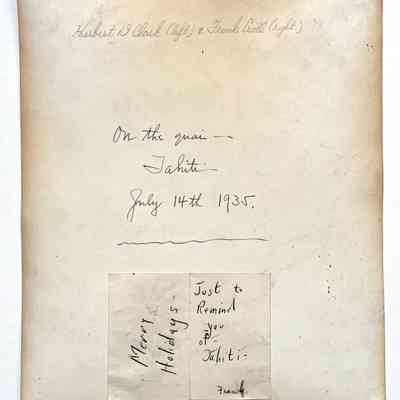 Herbert D Clark (left) & Frank (right.)
On the quai —
Tahiti
July 14th 1935.
Merry
Holidays -
Just to
Remind
you
of -
Tahiti -
Frank.